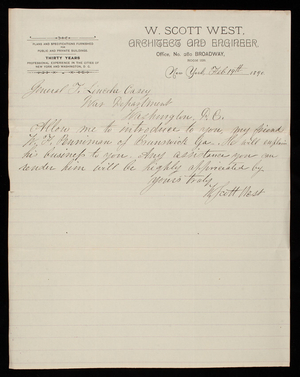 W. SCOTT WEST,
ARCHITECT AND ENGINEER,
Office, No. 280 BROADWAY,
PLANS AND SPECIFICATIONS FURNISHED
FOR
PUBLIC AND PRIVATE BUILDINGS
THIRTY YEARS
PROFESSIONAL EXPERIENCE IN THE CITIES OF
NEW YORK AND WASHINGTON, D. C.
New York, Feb 19th 1890
General T. Lincoln Casey
War Department
Washington D.C.
Allow me to introduce to you my friend
of Brunswick Ga. He will explain
his business to you. Any assistance you can
render him will be highly appreciated by
Yours truly,
W Scott West